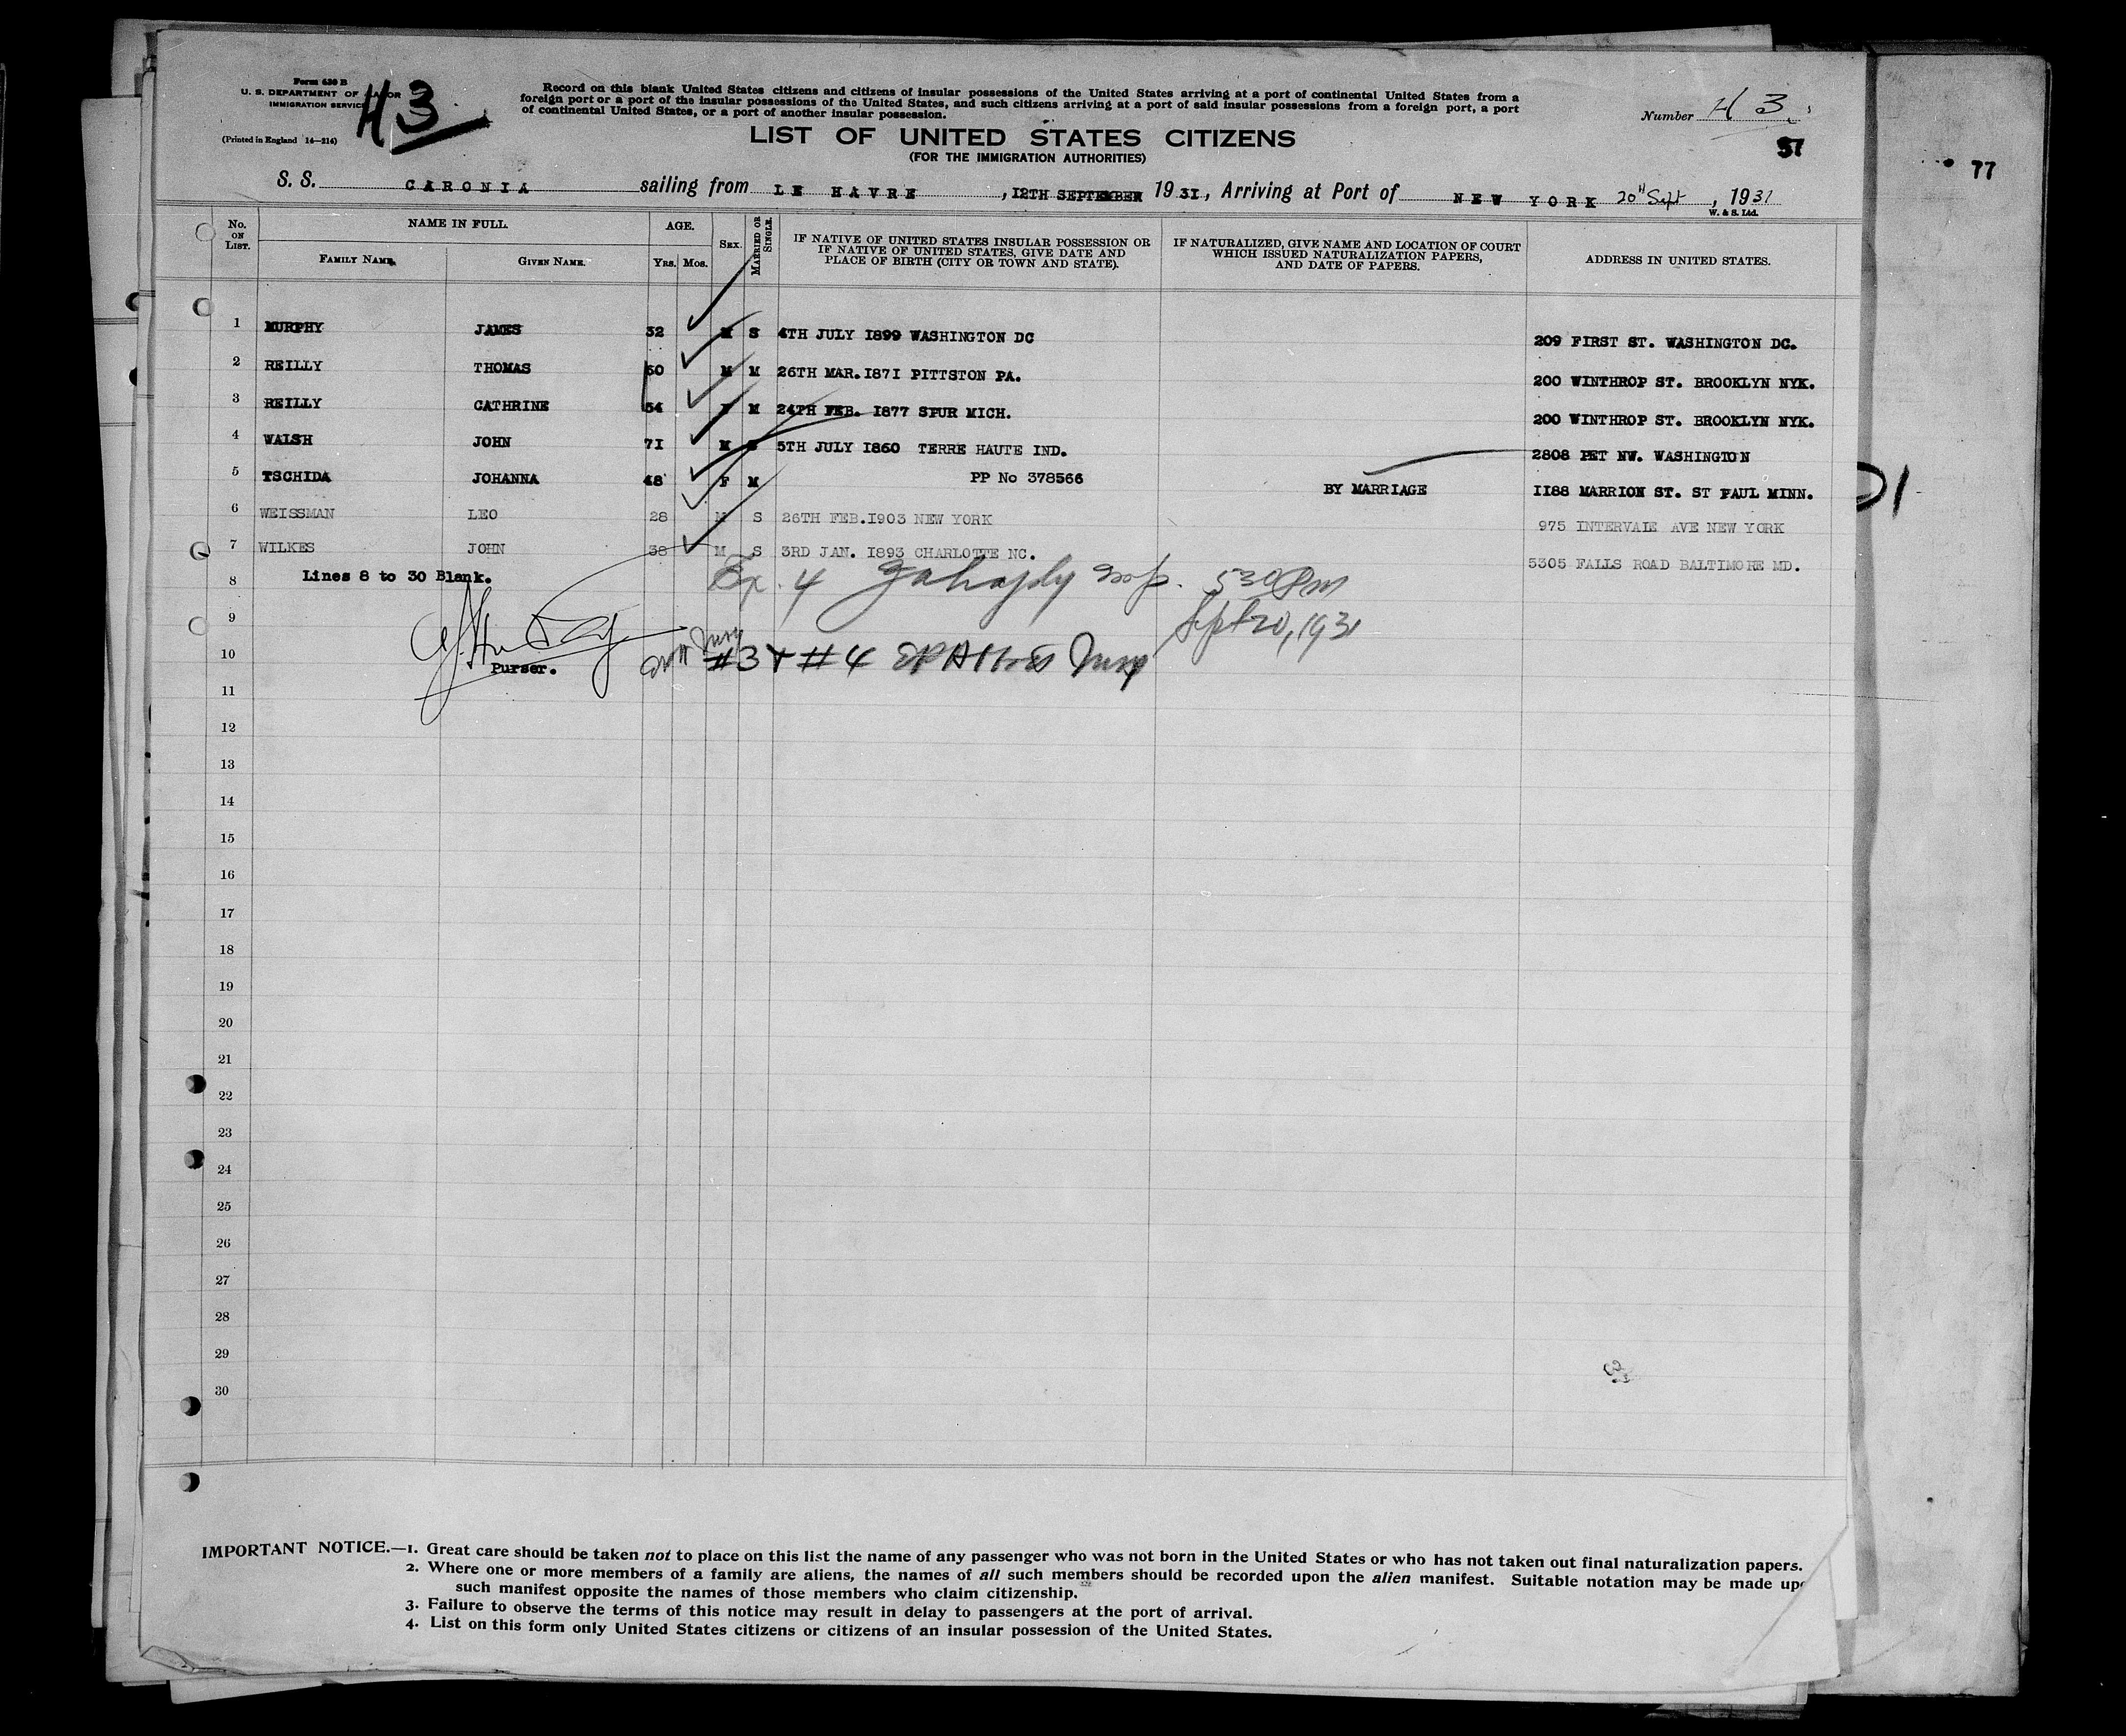 Form 630 B
U. S. DEPARTMENT OF LABOR
IMMIGRATION SERVICE
(Printed in England 14—214)
H3
Record on this blank United States citizens and citizens of insular possessions of the United States arriving at a port of continental United States from a
foreign port or a port of the insular possessions of the United States, and such citizens arriving at a port of said insular possessions from a foreign port, a port
of continental United States, or a port of another insular possession.
Number H 3
LIST OF UNITED STATES CITIZENS
(FOR THE IMMIGRATION AUTHORITIES)
37
77
S. S. CARONIA sailing from LE HAVRE, 12TH SEPTEMBER 1931, Arriving at Port of NEW YORK 20th Sept, 1931
W. & S. Ltd.
No. ON LIST. NAME IN FULL. AGE. SEX. MARRIED OR SINGLE. IF NATIVE OF UNITED STATES INSULAR POSSESSION OR IF NATIVE OF UNITED STATES, GIVE DATE AND PLACE OF BIRTH (CITY OR TOWN AND STATE). IF NATURALIZED, GIVE NAME AND LOCATION OF COURT WHICH ISSUED NATURALIZATION PAPERS, AND DATE OF PAPERS. ADDRESS IN UNITED STATES.
FAMILY NAME. GIVEN NAME. YRS. MOS.
1 MURPHY JAMES 32 M S 4TH JULY 1899 WASHINGTON DC 209 FIRST ST. WASHINGTON DC.
2 REILLY THOMAS 60 M M 26TH MAR. 1871 PITTSTON PA. 200 WINTHROP ST. BROOKLYN NYK.
3 REILLY CATHRINE 54 F M 24TH FEB. 1877 SPUR MICH. 200 WINTHROP ST. BROOKLYN NYK.
4 WALSH JOHN 71 M S 5TH JULY 1860 TERRE HAUTE IND. 2808 PET NW. WASHINGTON
5 TSCHIDA JOHANNA 48 F M PP No 378566 BY MARRIAGE 1188 MARRION ST. ST PAUL MINN.
6 WEISSMAN LEO 28 M S 26TH FEB.1903 NEW YORK 975 INTERVALE AVE NEW YORK
7 WILKES JOHN 38 M S 3RD JAN. 1893 CHARLOTTE NC. 5305 FALLS ROAD BALTIMORE MD.
8 Lines 8 to 30 Blank.
Ex. 4 Insp. 530 Pm
Sept 20, 1931
9
10
Purser.
#3 + #4
11
12
13
14
15
16
17
18
19
20
21
22
23
24
25
26
27
28
29
30
IMPORTANT NOTICE.—1. Great care should be taken not to place on this list the name of any passenger who was not born in the United States or who has not taken out final naturalization papers.
2. Where one or more members of a family are aliens, the names of all such members should be recorded upon the alien manifest. Suitable notation may be made upo
such manifest opposite the names of those members who claim citizenship.
3. Failure to observe the terms of this notice may result in delay to passengers at the port of arrival.
4. List on this form only United States citizens or citizens of an insular possession of the United States.